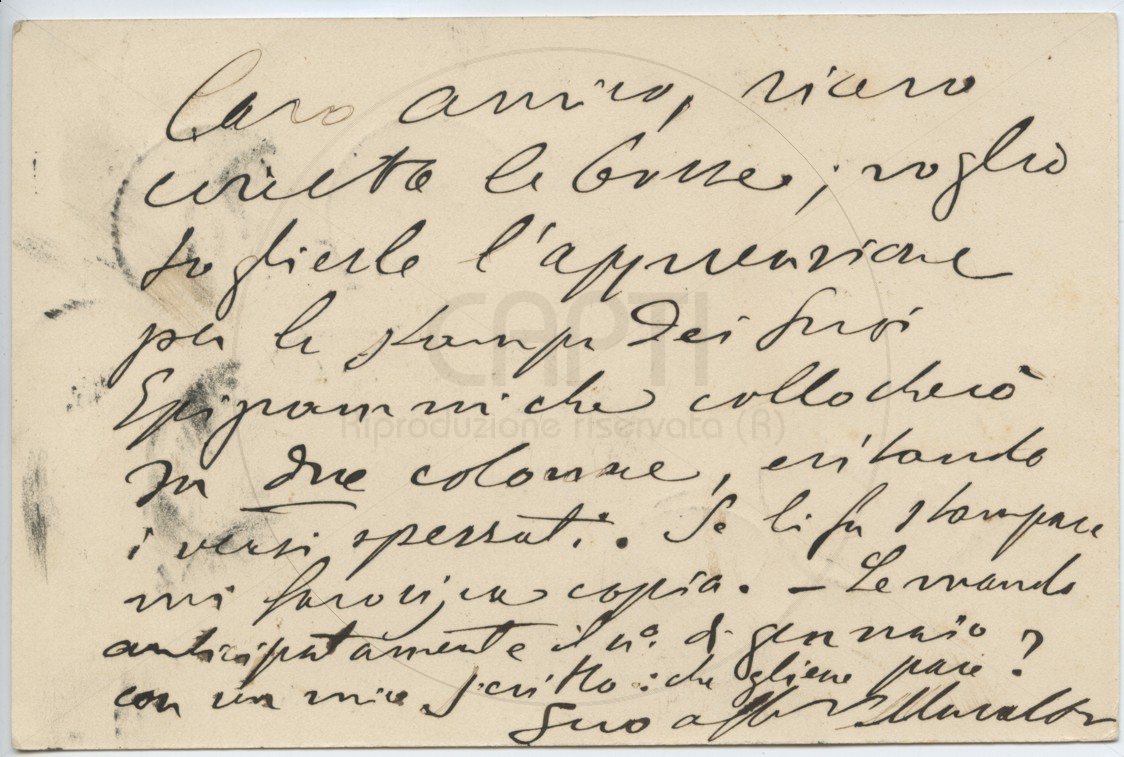 Caro amico, ricevo
corrette le bozze; voglio
toglierle l'apprensione
per la stampa dei suoi
Epigrammi che collocherò
in due colonne, evitando
i versi spezzati. Se li fa stampare
mi favorisca copia. – Le mando
anticipatamente il n.º di gennaio
con un mio scritto: che gliene pare?
Suo aff.
CAPTI
Riproduzione riservata (R)